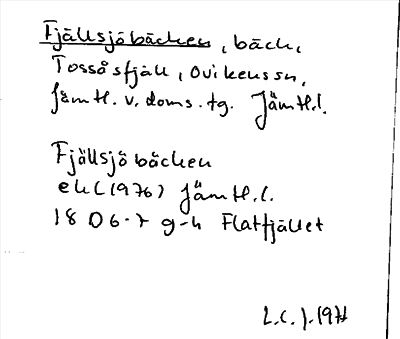 Fjällsjöbäcken, bäck,
Tossåsfjäll, Ovikens sn,
Jämtl. v. doms. tg. Jämtl.l.
Fjällsjöbäcken
ek (1976) Jämtl.l.
18 D 6-7 g-h Flatfjället
L.C.J. 1971